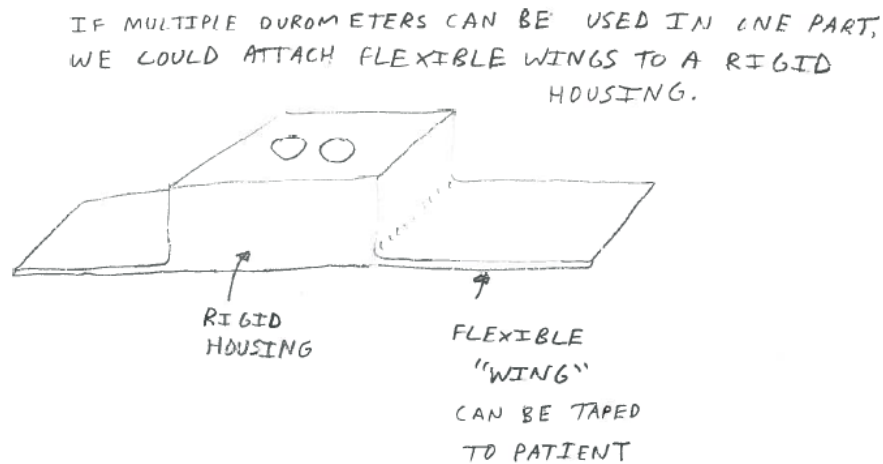 IF MULTIPLE DUROMETERS CAN BE USED IN ONE PART,
WE COULD ATTACH FLEXIBLE WINGS TO A RIGID
HOUSING.
RIGID
HOUSING
FLEXIBLE
"WING"
CAN BE TAPED
TO PATIENT